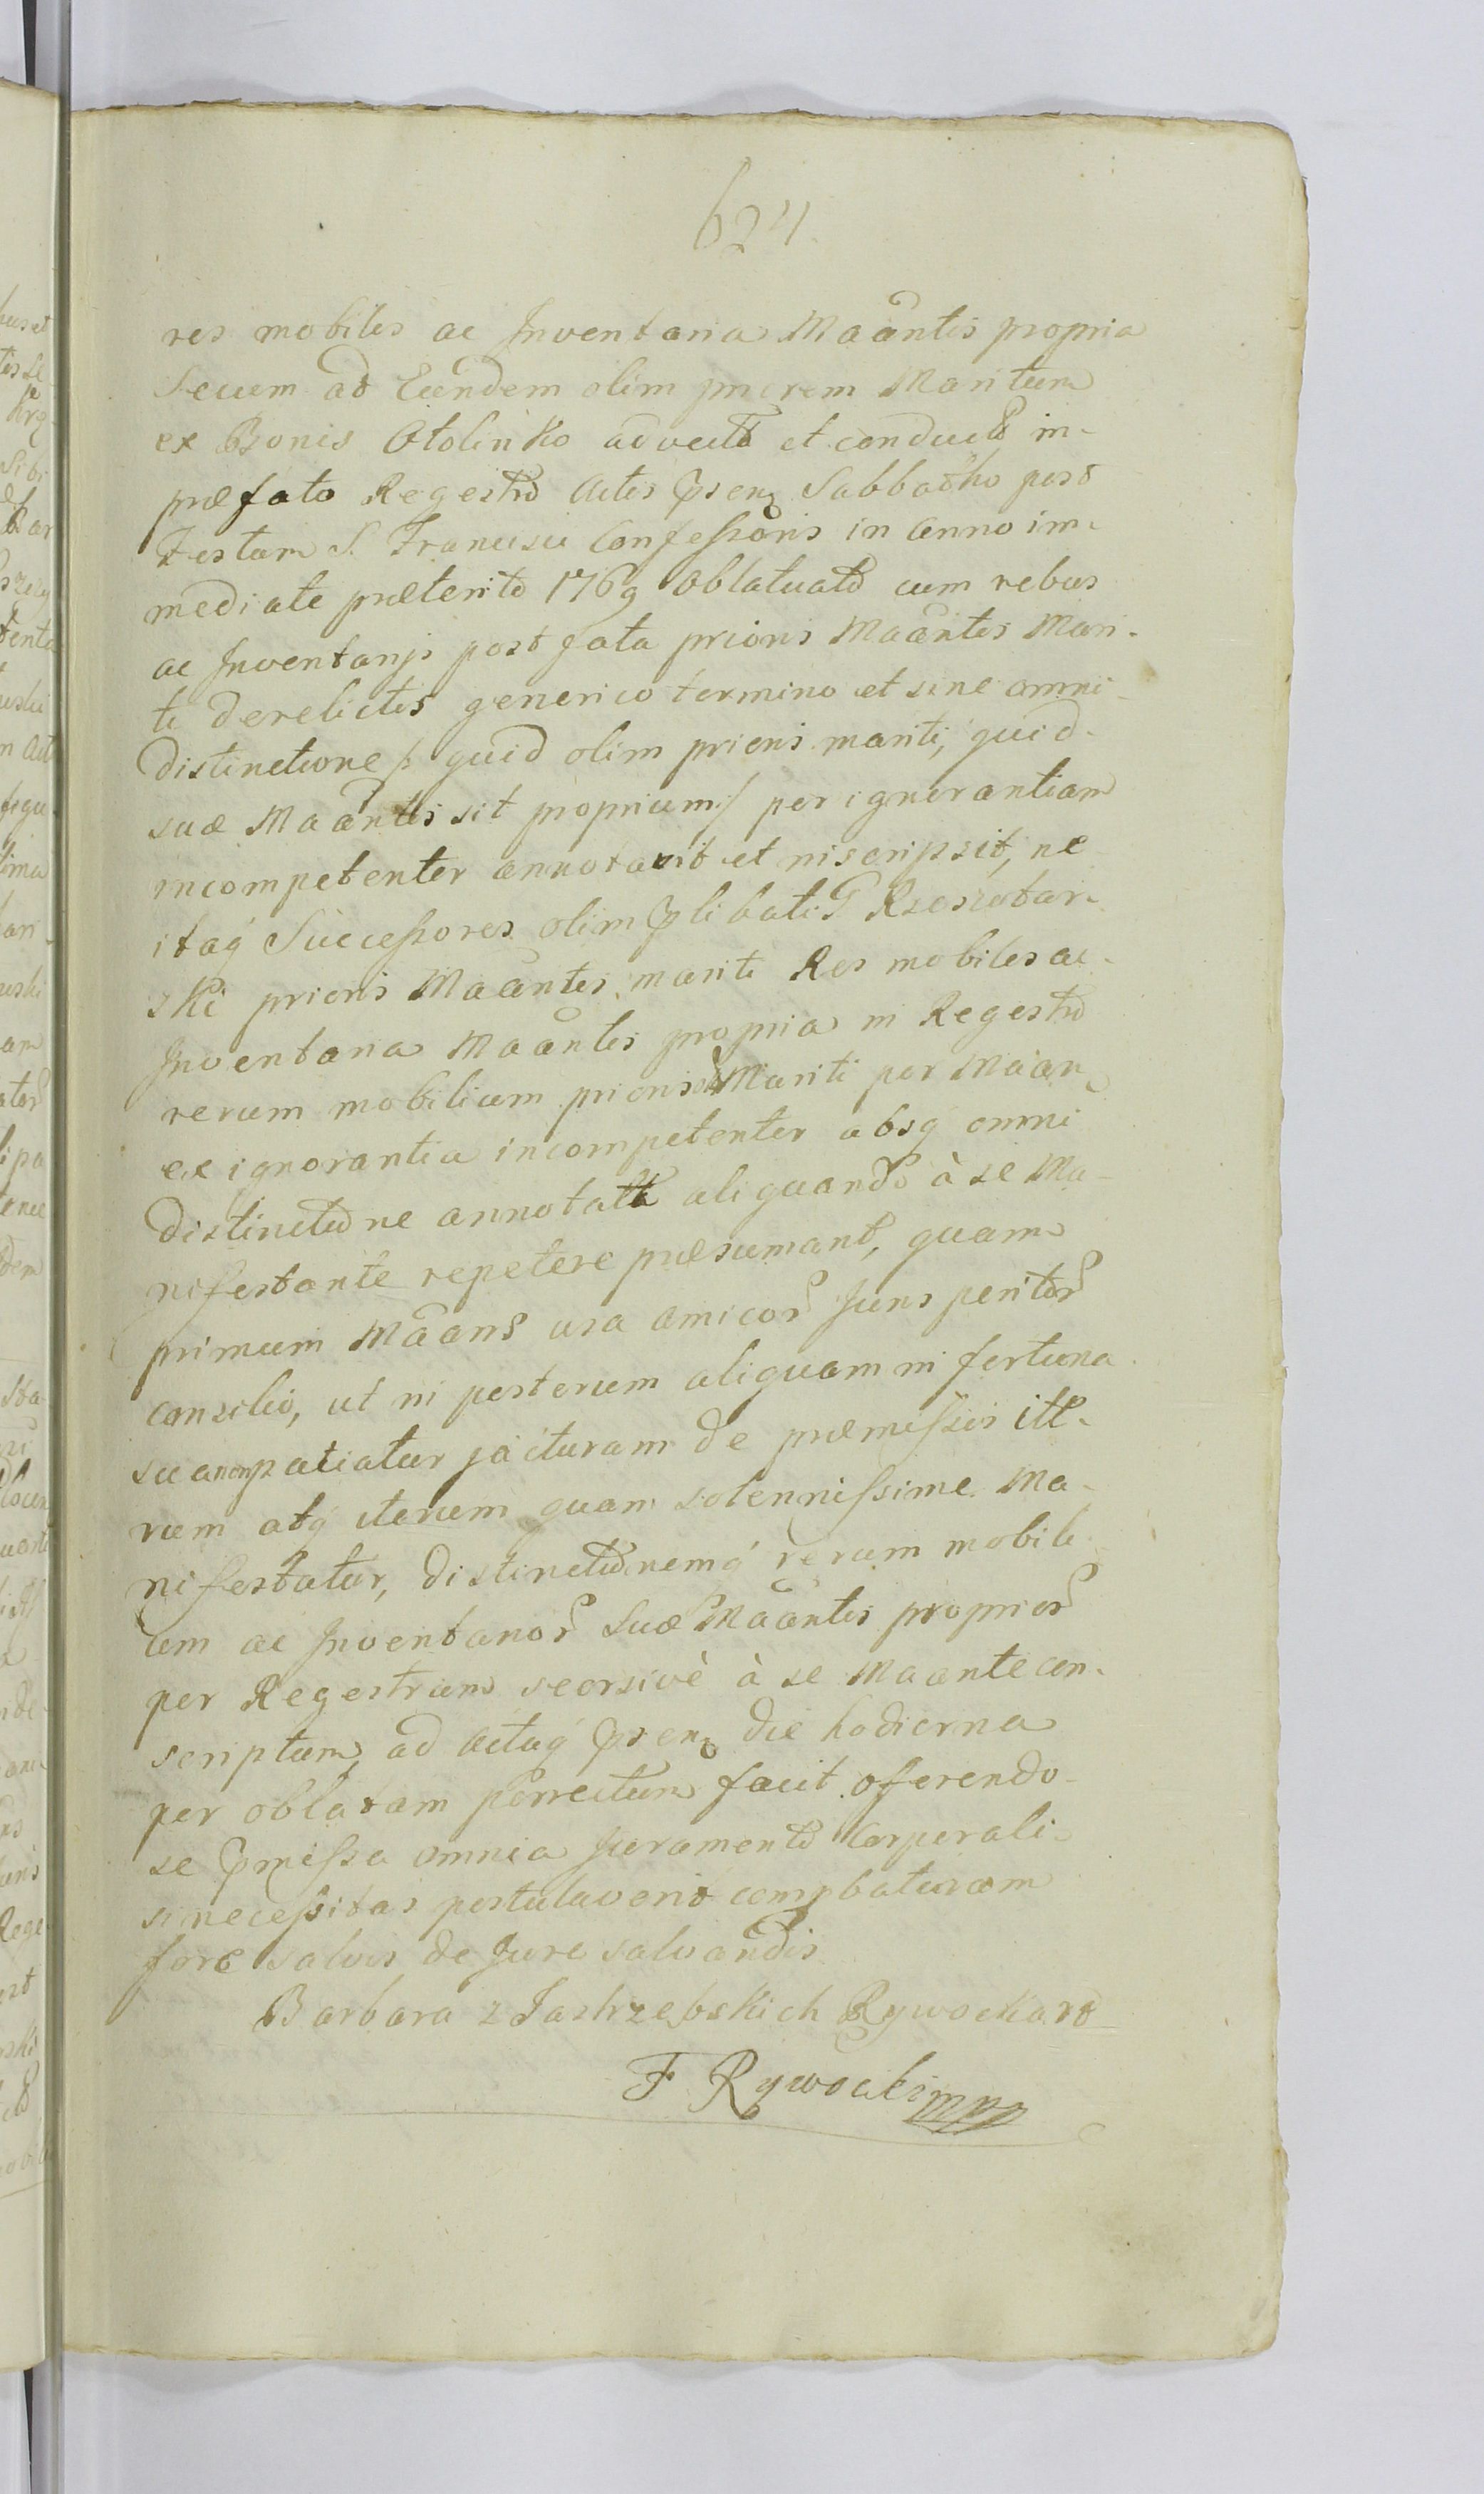 624.
res mobiles ac Inventaria Maãntis propria
secum ad Eundem olim priorem Maritum
ex Bonis Otolinko advecta et conducta in-
præfato Regestro Actis Psenz Sabbatho post
Festum S. Francisci Confeſsoris in Anno im-
mediate præterito 1769 oblatuato cum rebus
ac Inventarijs post fata prioris Maãntis Mari-
ti derelictis generico termino et sine omni-
distinctione /: quid olim prioris mariti, quid-
suæ Maãntis sit proprium :/ per ignorantiam
incompetenter annotavit et inscripsit, ne
itaq́ Succeſsores olim Plibati G Rzeszotar-
ski prioris Maãntis mariti Res mobiles ac-
Inventaria Maãntis propria in Regestro
rerum mobilium prioris Mariti per Maan
ex ignorantia incompetenter absq́ omni
distinctione annotata aliquando à se Ma-
nifestante repetere præsumant, quam
primum Maans usa amicor Juris peritor
consilio, ut in posterum aliquam in fortuna
sua non patiatur jacturam de præmiſsis ite-
rum atq́ iterum quam solenniſsime Ma-
nifestatur, distinctionemq́ rerum mobili
um ac Inventarior Suæ Maãntis proprior
per Regestrum seorsivè à se Maante con-
scriptum, ad Actaq́ Psenz die hodierna
per oblatam porrectum facit. oferendo-
se Pmiſsa omnia juramento Corporali-
si neceſsitas postulaverit compbaturam
fore salvis de Jure salvandis
Barbara z Jastrzębskich Rywocka
F Rywocki mpp